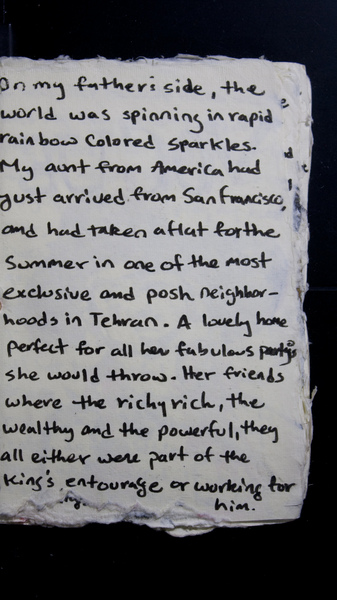 On my father's side, the
world was spinning in rapid
rainbow Colored sparkles.
My aunt from America had
just arrived from San francisco,
and had taken a flat for the
Summer in one of the most
exclusive and posh neighbor-
hoods in Tehran. A lovely home
perfect for all her fabulous party's
she would throw. Her friends
where the richy rich, the
wealthy and the powerful, they
all either were part of the
King's entourage or working for
him.